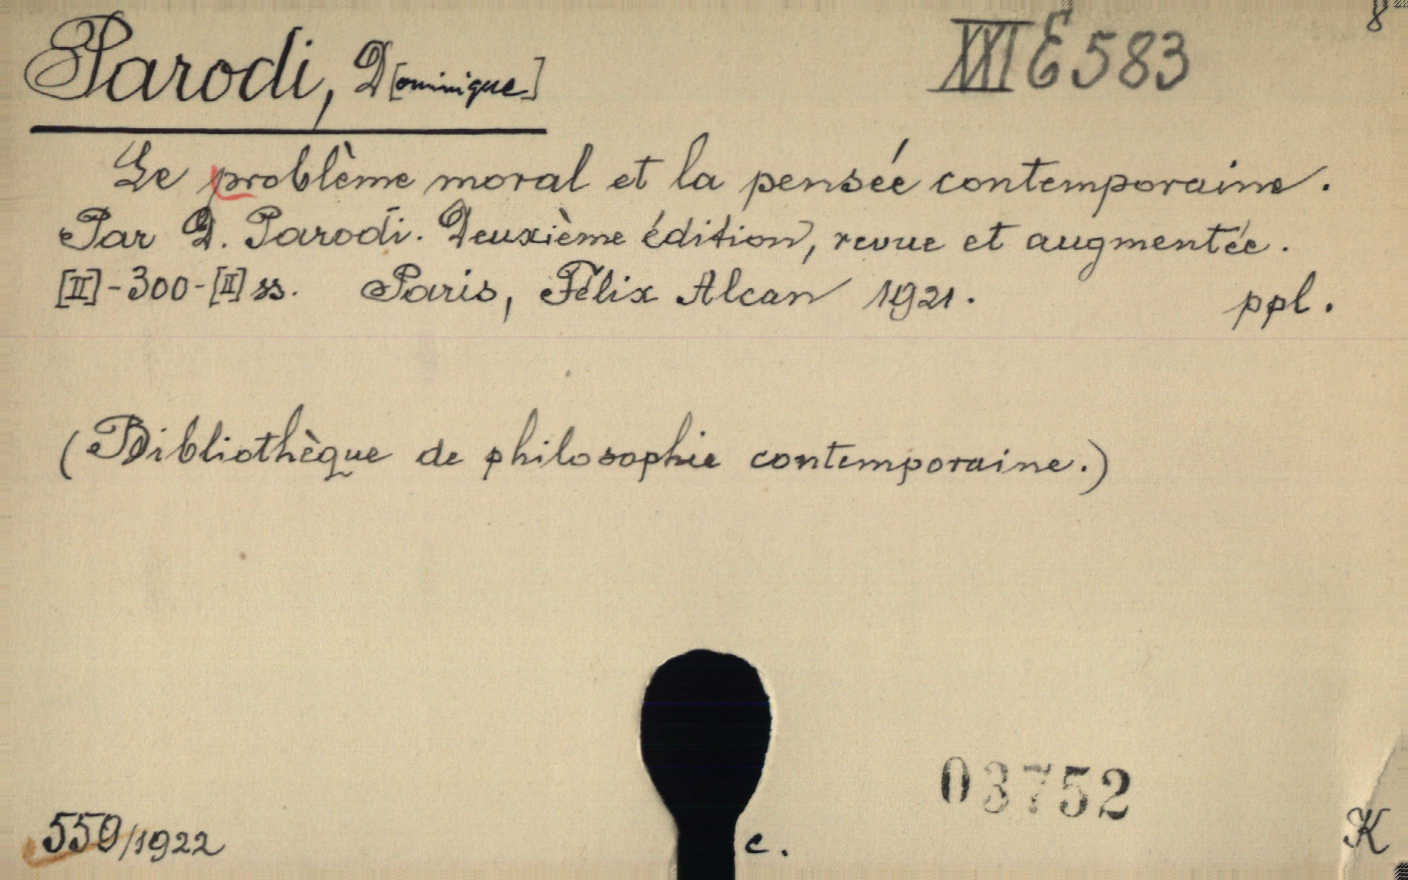 8°
Parodi, D[ominique] XXI E 583
Le problème moral et la pensée contemporaine.
Par D. Parodi. Deuxième édition, revue et augmentée.
[II]-300-[II] ss. Paris, Félix Alcan 1921. ppl.
(Bibliothèque de philosophie contemporaine.)
03752
559/1922 c. K